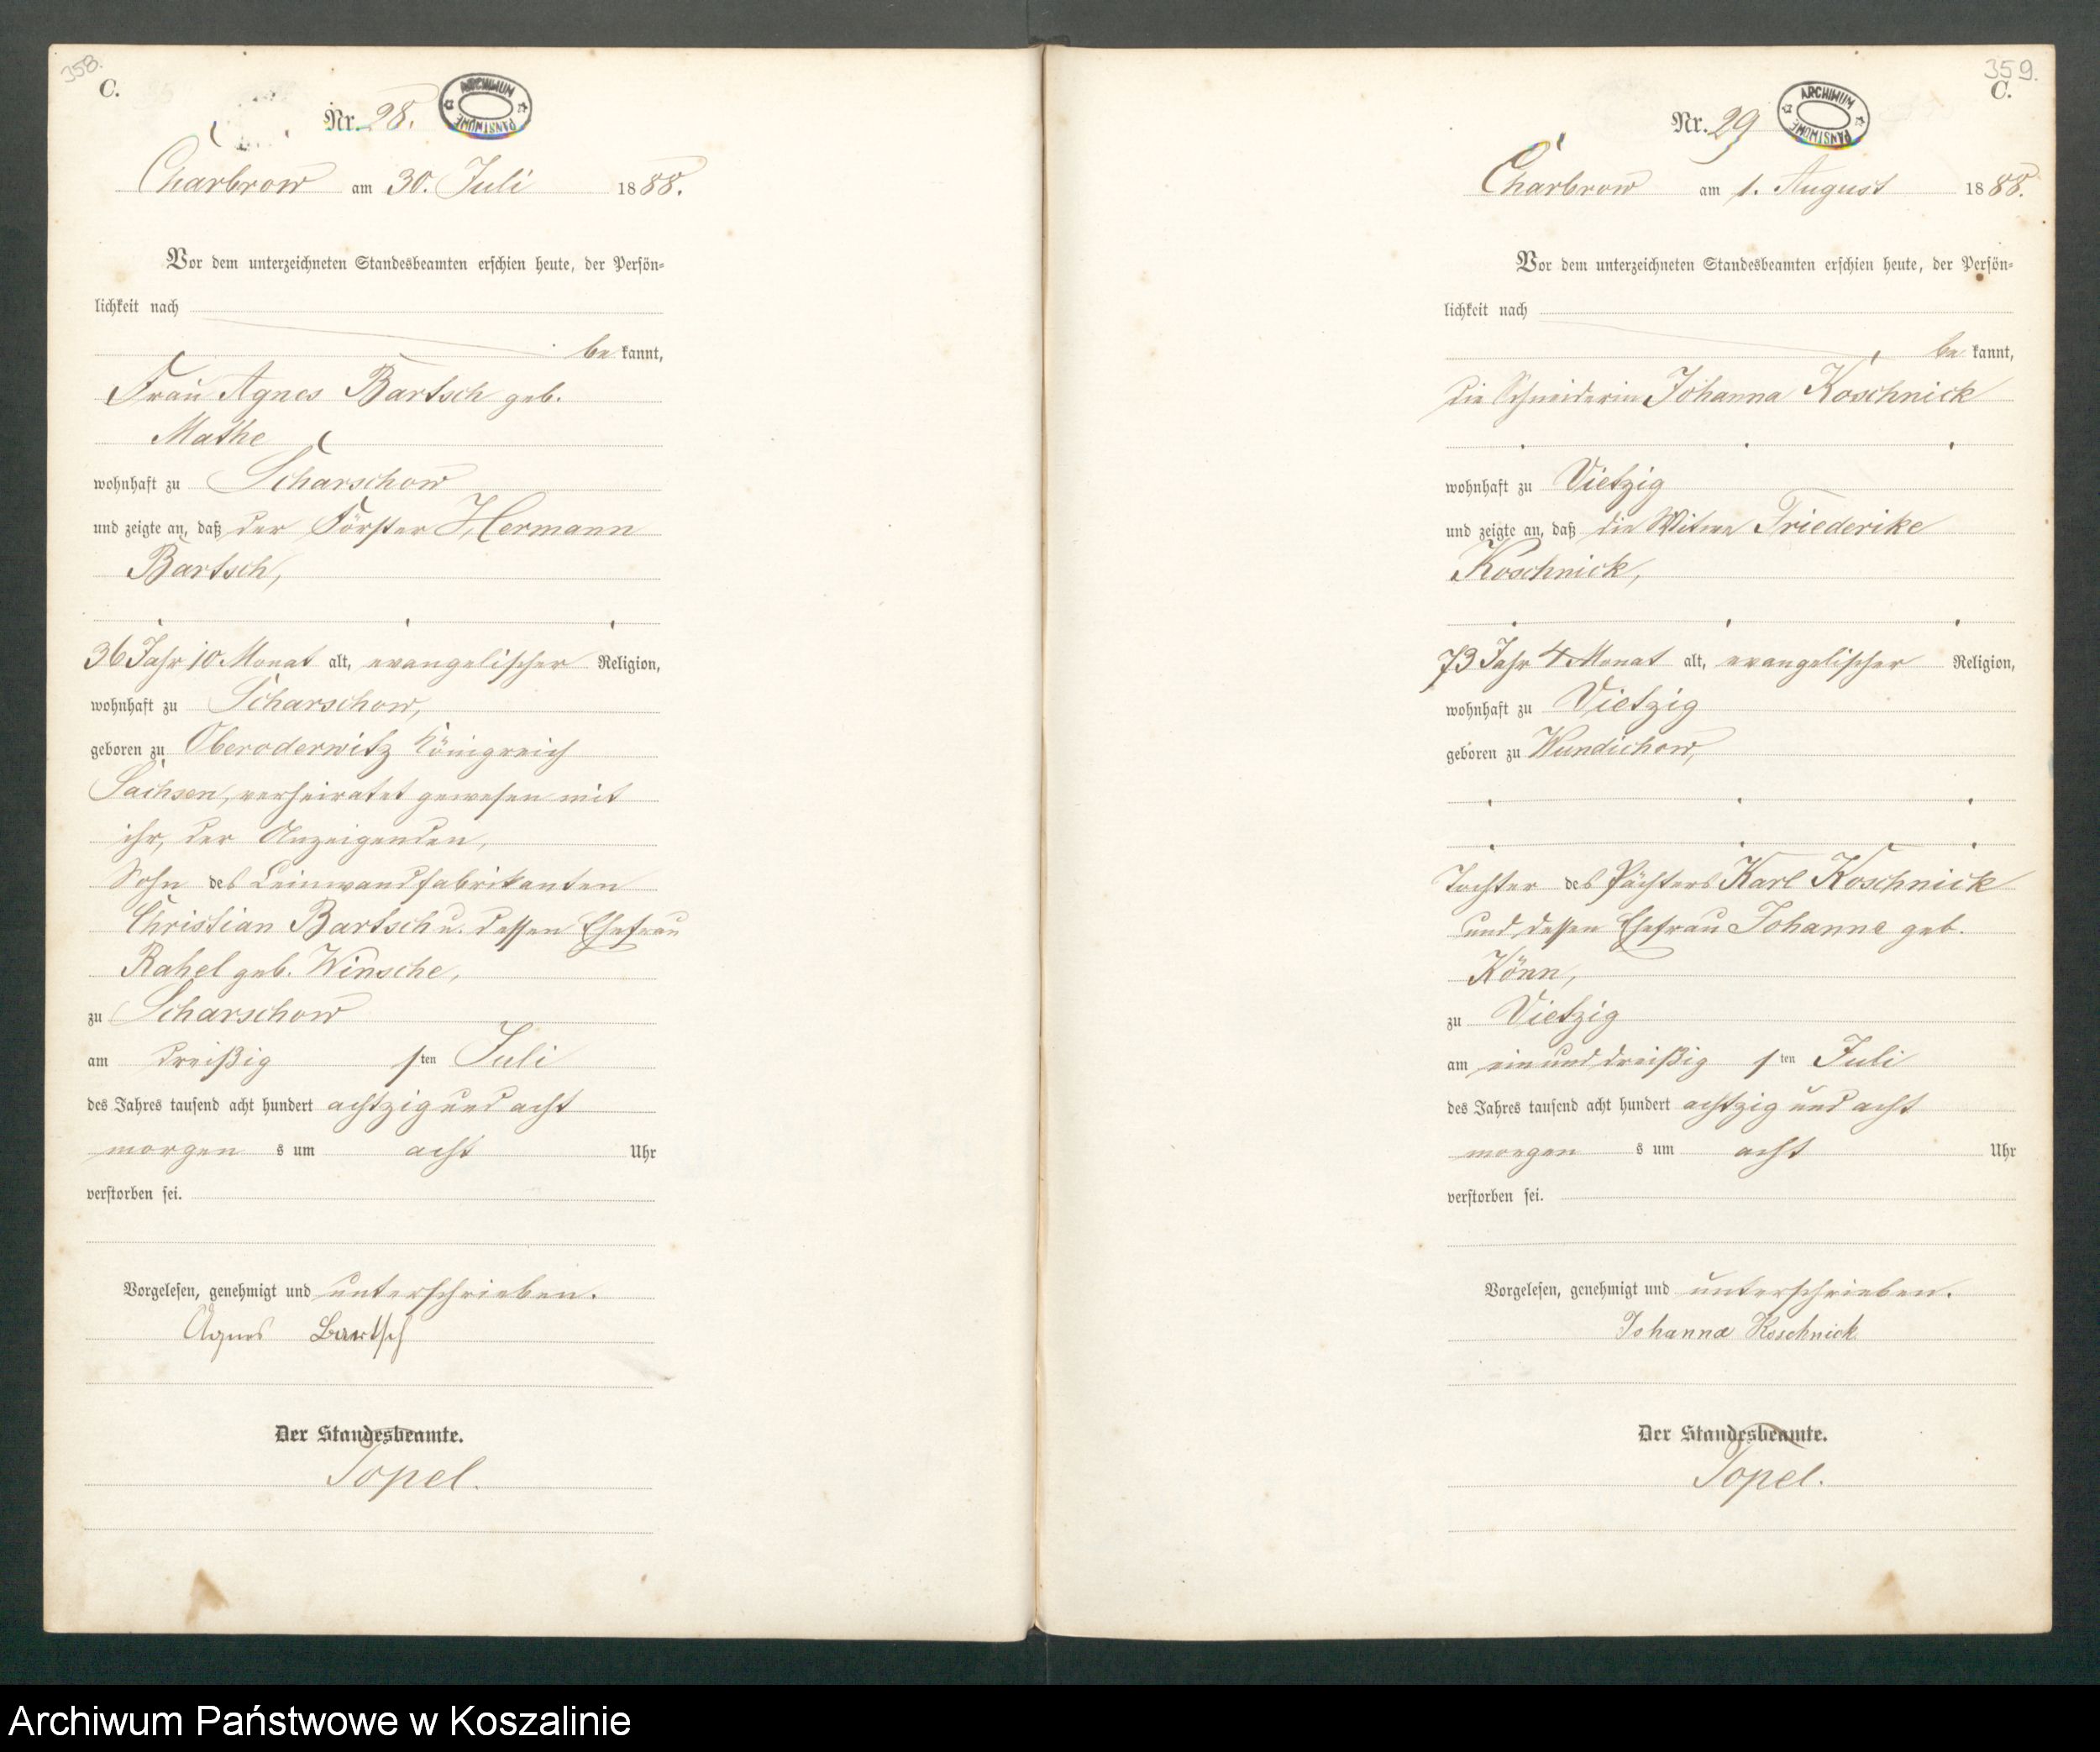 358.
C.
Nr. 28.
ARCHIWUM PAŃSTWOWE
Charbrow am 30. Juli 1888.
Vor dem unterzeichneten Standesbeamten erschien heute, der Persön-
lichkeit nach
be kannt,
Frau Agnes Bartsch geb.
Mathe
wohnhaft zu Scharschow
und zeigte an, daß der Förster Hermann
Bartsch,
36 Jahr 10 Monat alt, evangelischer Religion,
wohnhaft zu Scharschow,
geboren zu Oberoderwitz Königreich
Sachsen, verheiratet gewesen mit
ihr, der Anzeigenden,
Sohn des Leinwandfabrikanten
Christian Bartsch u. dessen Ehefrau
Rahel geb. Winsche,
zu Scharschow
am dreißig sten Juli
des Jahres tausend acht hundert achtzig und acht
morgen s um acht Uhr
verstorben sei.
Vorgelesen, genehmigt und unterschrieben.
Agnes Bartsch
Der Standesbeamte.
Topel.
359.
C.
Nr. 29
ARCHIWUM PAŃSTWOWE
Charbrow am 1. August 1888.
Vor dem unterzeichneten Standesbeamten erschien heute, der Persön-
lichkeit nach
be kannt,
die Schneiderin Johanna Koschnick
wohnhaft zu Vietzig
und zeigte an, daß die Witwe Friederike
Koschnick,
73 Jahr 4 Monat alt, evangelischer Religion,
wohnhaft zu Vietzig
geboren zu Wundichow,
Tochter des Pächters Karl Koschnick
und dessen Ehefrau Johanne geb.
Könn,
zu Vietzig
am ein und dreißig sten Juli
des Jahres tausend acht hundert achtzig und acht
morgen s um acht Uhr
verstorben sei.
Vorgelesen, genehmigt und unterschrieben.
Johanna Koschnick
Der Standesbeamte.
Topel.
Archiwum Państwowe w Koszalinie